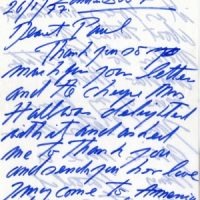 Dearest Paul
Thank you so
much for your letter
and the cheque Mrs
was delighted
with it and asked
me to thank you
and send you her love
come to America